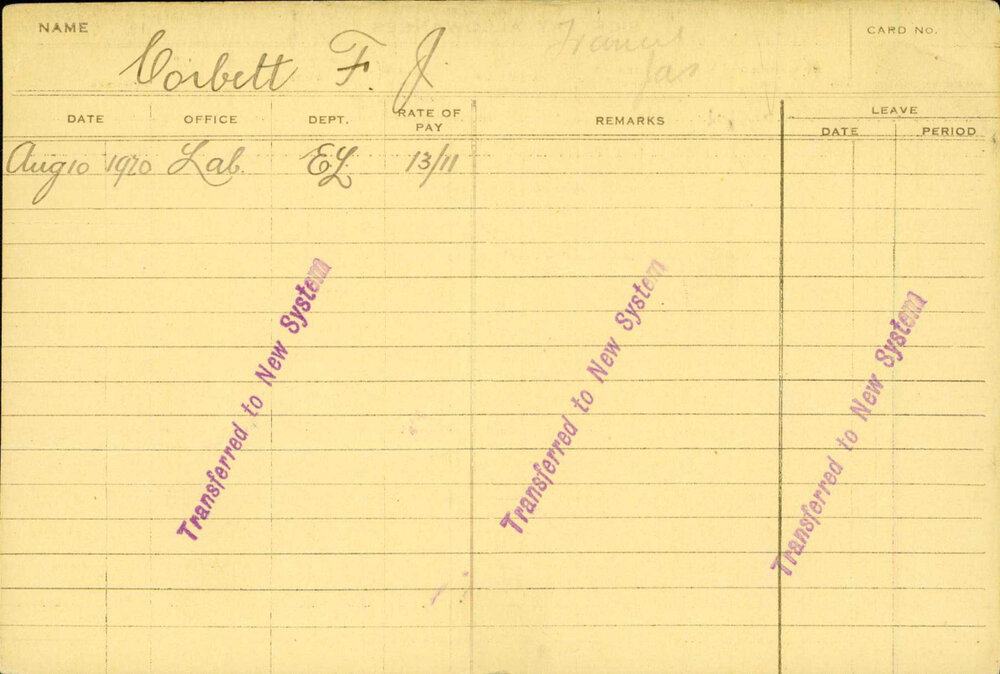 NAME
CARD NO.
Corbett F. J.
Francis
Jas
DATE OFFICE DEPT. RATE OF PAY REMARKS LEAVE
DATE PERIOD
Aug 10 1920 Lab. EL 13/11
Transferred to New System
Transferred to New System
Transferred to New System